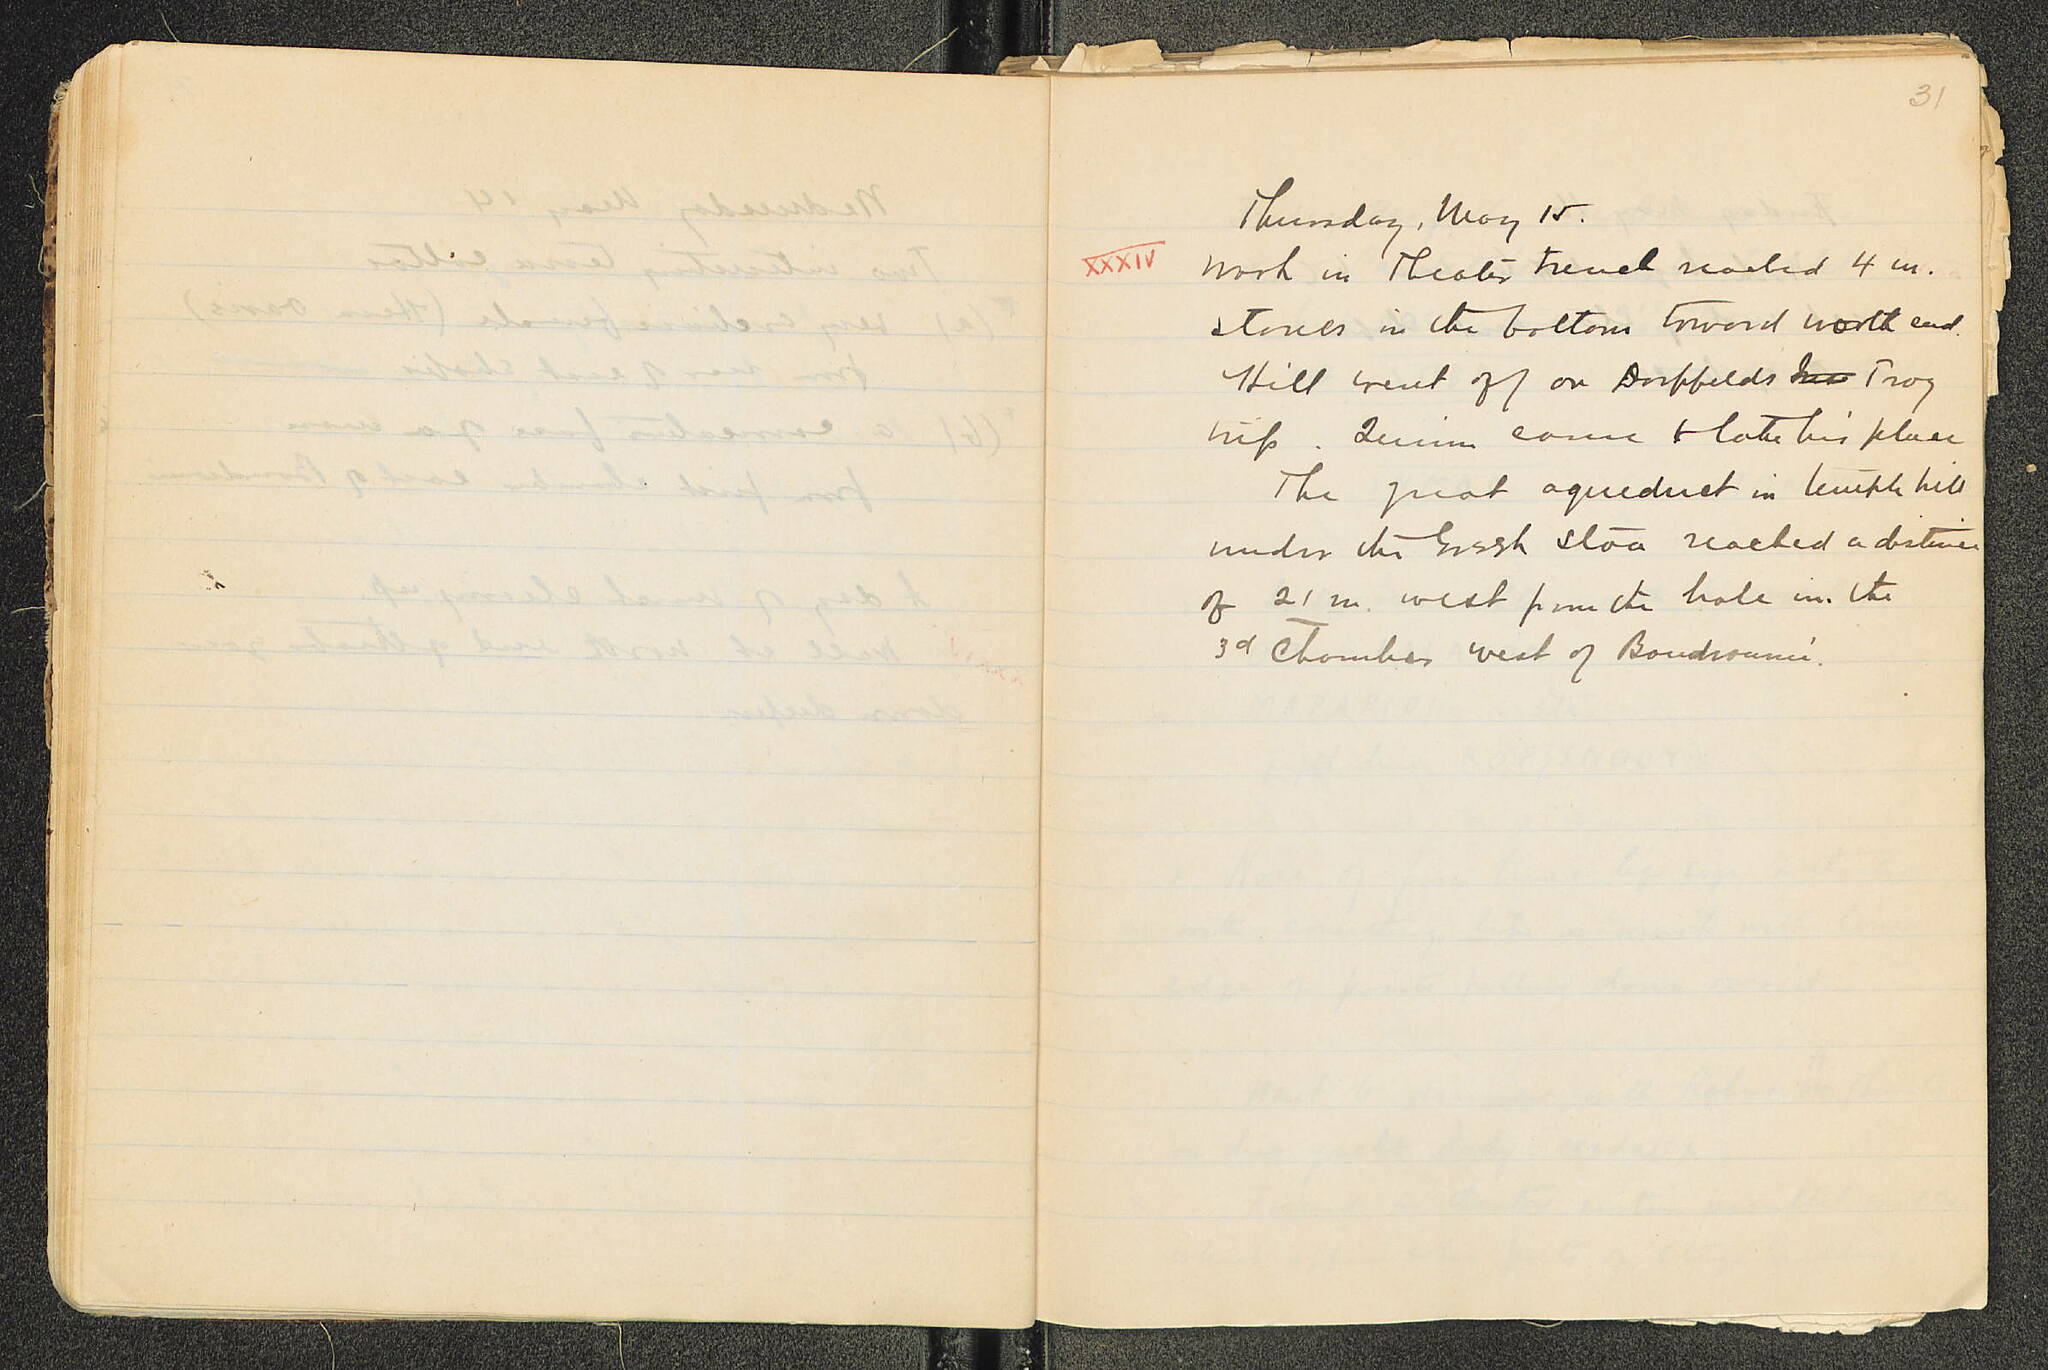 31
Thursday, May 15.
XXXIV Work in Theater trench reached 4 m.
stones in the bottom toward north end.
Hill went off on Dörpfelds Troy
trip. Quinn came to take his place
The great aqueduct in temple hill
under the Greek stoa reached a distance
of 21 m. west from the hole in the
3d Chamber west of Boudroumi.